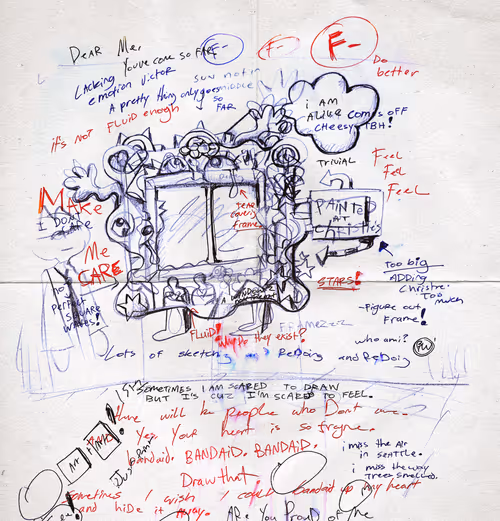 DEAR Me,
You've come SO FAR
F-
F-
F-
Do
better
LACKING
emotion VICTOR
A pretty thing only goes
SO
FAR
it's NOT FLUID enough
i AM
ALiKe comes OFF
CHEESY TBH!
TRIVIAL
Feel
Feel
Feel
MAKE
I DON'T
CARE
Me
CARE
PAINTED
AT
Christie's
Frame
STARS!
Too big
ADDING
Christie.
Too
much
-Figure out
Frame!
who am i?
NOT
Perfect
SQUARE
FLUiD!
Why Do they exist?
Lots of sketching and ReDoing and ReDoing
SOMETIMES I AM SCARED TO DRAW
BUT I'S CUZ I'M SCARED TO FEEL.
there will be people who Dont care.
Yep. Your heart is so fragile.
bandaid. BANDAID. BANDAID.
Draw that
ART
i miss the Air
in SEATTLE.
i miss the way
Trees smelled.
Sometimes I wish I could bandaid up my heart
and hide it Away.
ARe You PRoud oF Me